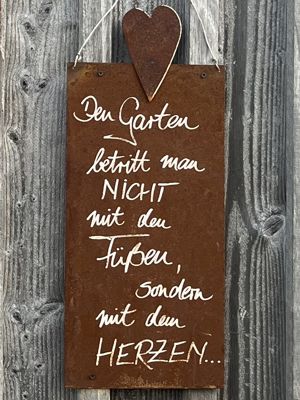 Den Garten
betritt man
NICHT
mit den
Füßen,
sondern
mit dem
HERZEN...